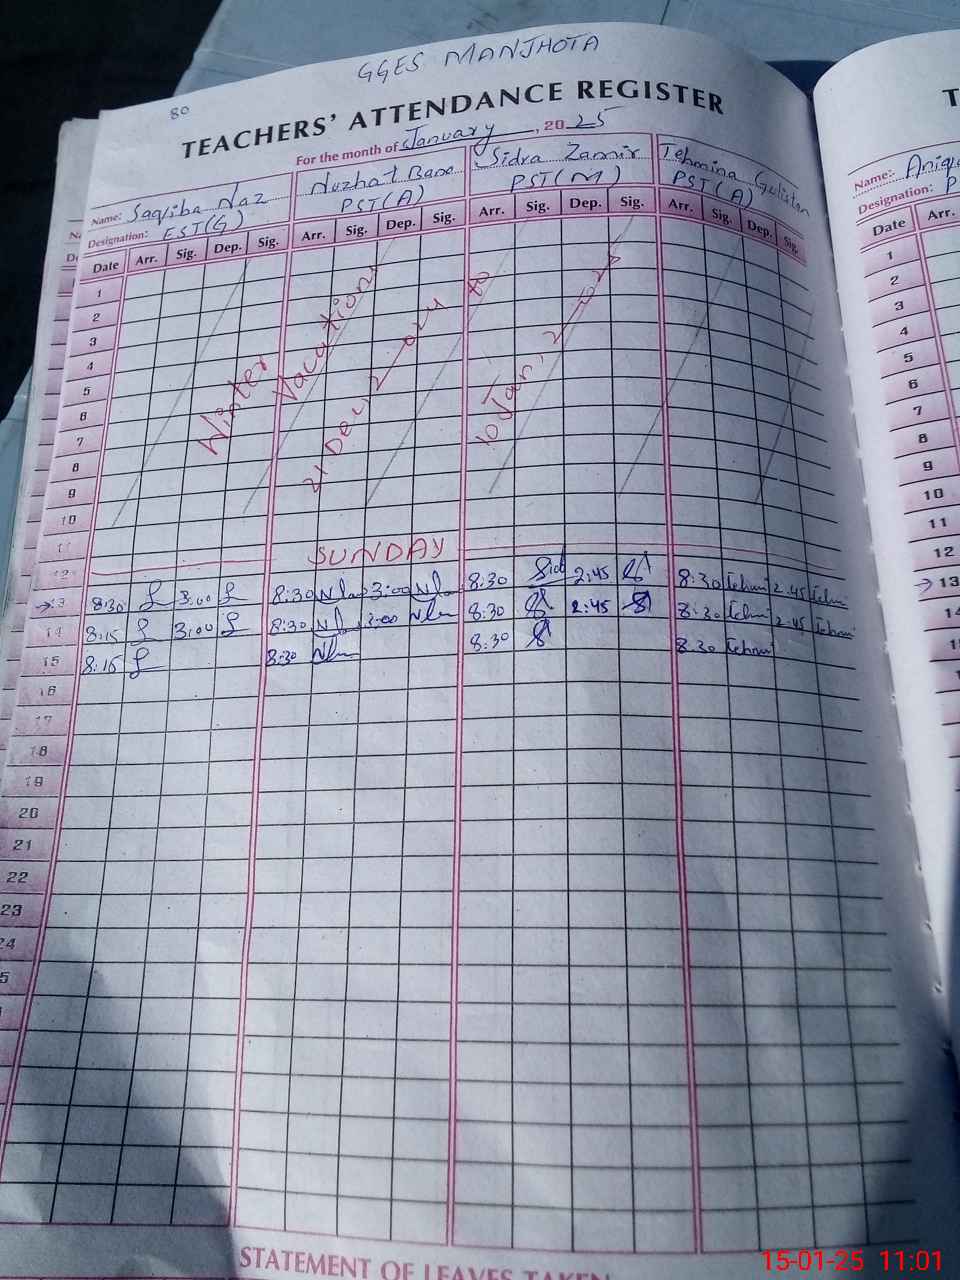 GGES MANJHOTA
80
TEACHERS' ATTENDANCE REGISTER
For the month of January, 2025
Name: Saqiba Naz Nuzhat Bano Sidra Zamir Tehmina Gulistan
Designation: EST(G) PST(A) PST(M) PST(A)
Date Arr. Sig. Dep. Sig. Arr. Sig. Dep. Sig. Arr. Sig. Dep. Sig. Arr. Sig. Dep. Sig.
1
2
3
4
5
6
7
8
9
10
11
Winter Vacations
21 Dec, 2024 to 10 Jan, 2025
12 SUNDAY
13 8:30 3:00 8:30 3:00 8:30 Sid 2:45 8:30 Tehmi 2:45 Tehmi
14 8:15 3:00 8:30 3:00 8:30 2:45 8:30 Tehmi 2:45 Tehmi
15 8:15 8:30 8:30 8:30 Tehmi
16
17
18
19
20
21
22
23
24
STATEMENT OF LEAVES TAKEN
T
Name:
Designation: P
Date Arr.
1
2
3
4
5
6
7
8
9
10
11
12
13
15-01-25 11:01